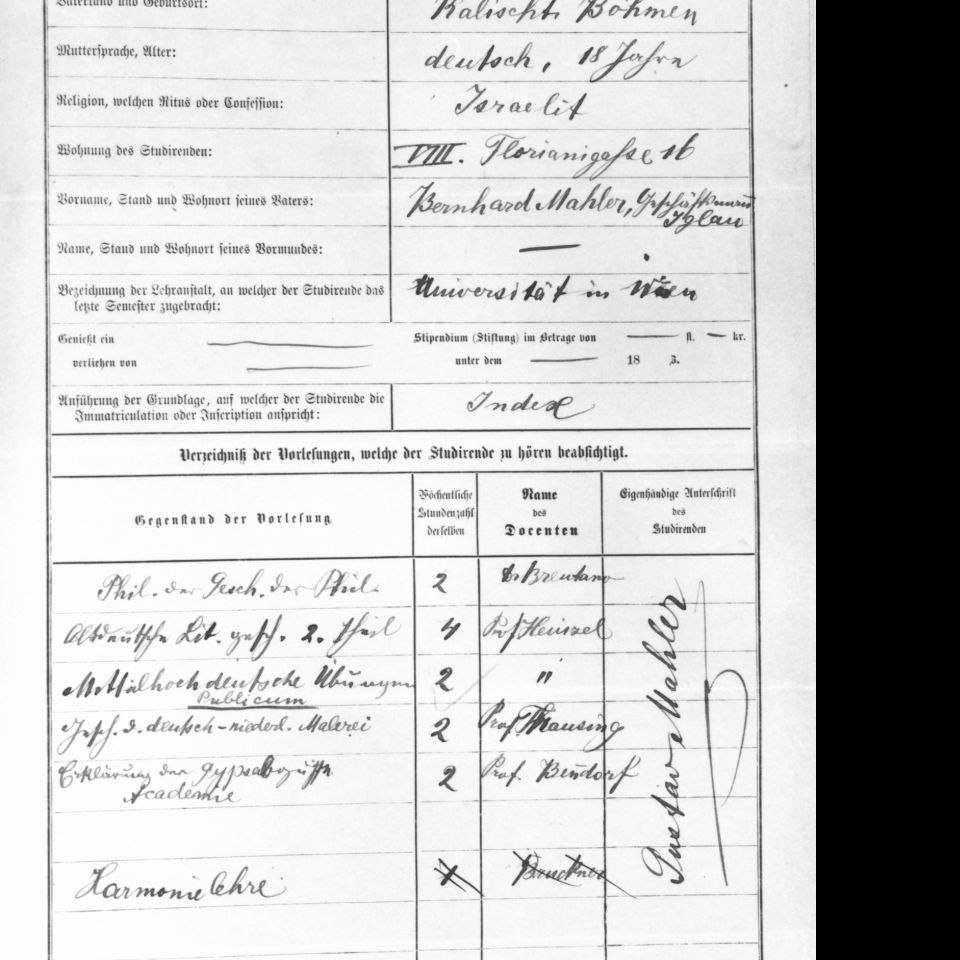 Vaterland und Geburtsort: Kalischt. Böhmen
Muttersprache, Alter: deutsch, 18 Jahre
Religion, welchen Ritus oder Confession: Israelit
Wohnung des Studirenden: VIII. Florianigasse 16
Vorname, Stand und Wohnort seines Vaters: Bernhard Mahler, Geschäftsmann
Iglau
Name, Stand und Wohnort seines Vormundes: —
Bezeichnung der Lehranstalt, an welcher der Studirende das
letzte Semester zugebracht: Universität in Wien
Genießt ein — Stipendium (Stiftung) im Betrage von — fl. — kr.
verliehen von — unter dem — 18 Z.
Anführung der Grundlage, auf welcher der Studirende die
Immatriculation oder Inscription anspricht: Index
Verzeichniß der Vorlesungen, welche der Studirende zu hören beabsichtigt.
Gegenstand der Vorlesung
Wöchentliche
Stundenzahl
derselben
Name
des
Docenten
Eigenhändige Unterschrift
des
Studirenden
Phil. der Gesch. der Phil. 2 Dr Brentano
Altdeutsche Lit. gesch. 2. Theil 4 Prof Heinzel
Mittelhochdeutsche Übungen 2 "
Publicum
Gesch. d. deutsch-niederl. Malerei 2 Prof. Thausing
Erklärung der Gypsabgüsse 2 Prof. Bendorf
Academie
Harmonielehre 4 Bruckner
Gustav Mahler